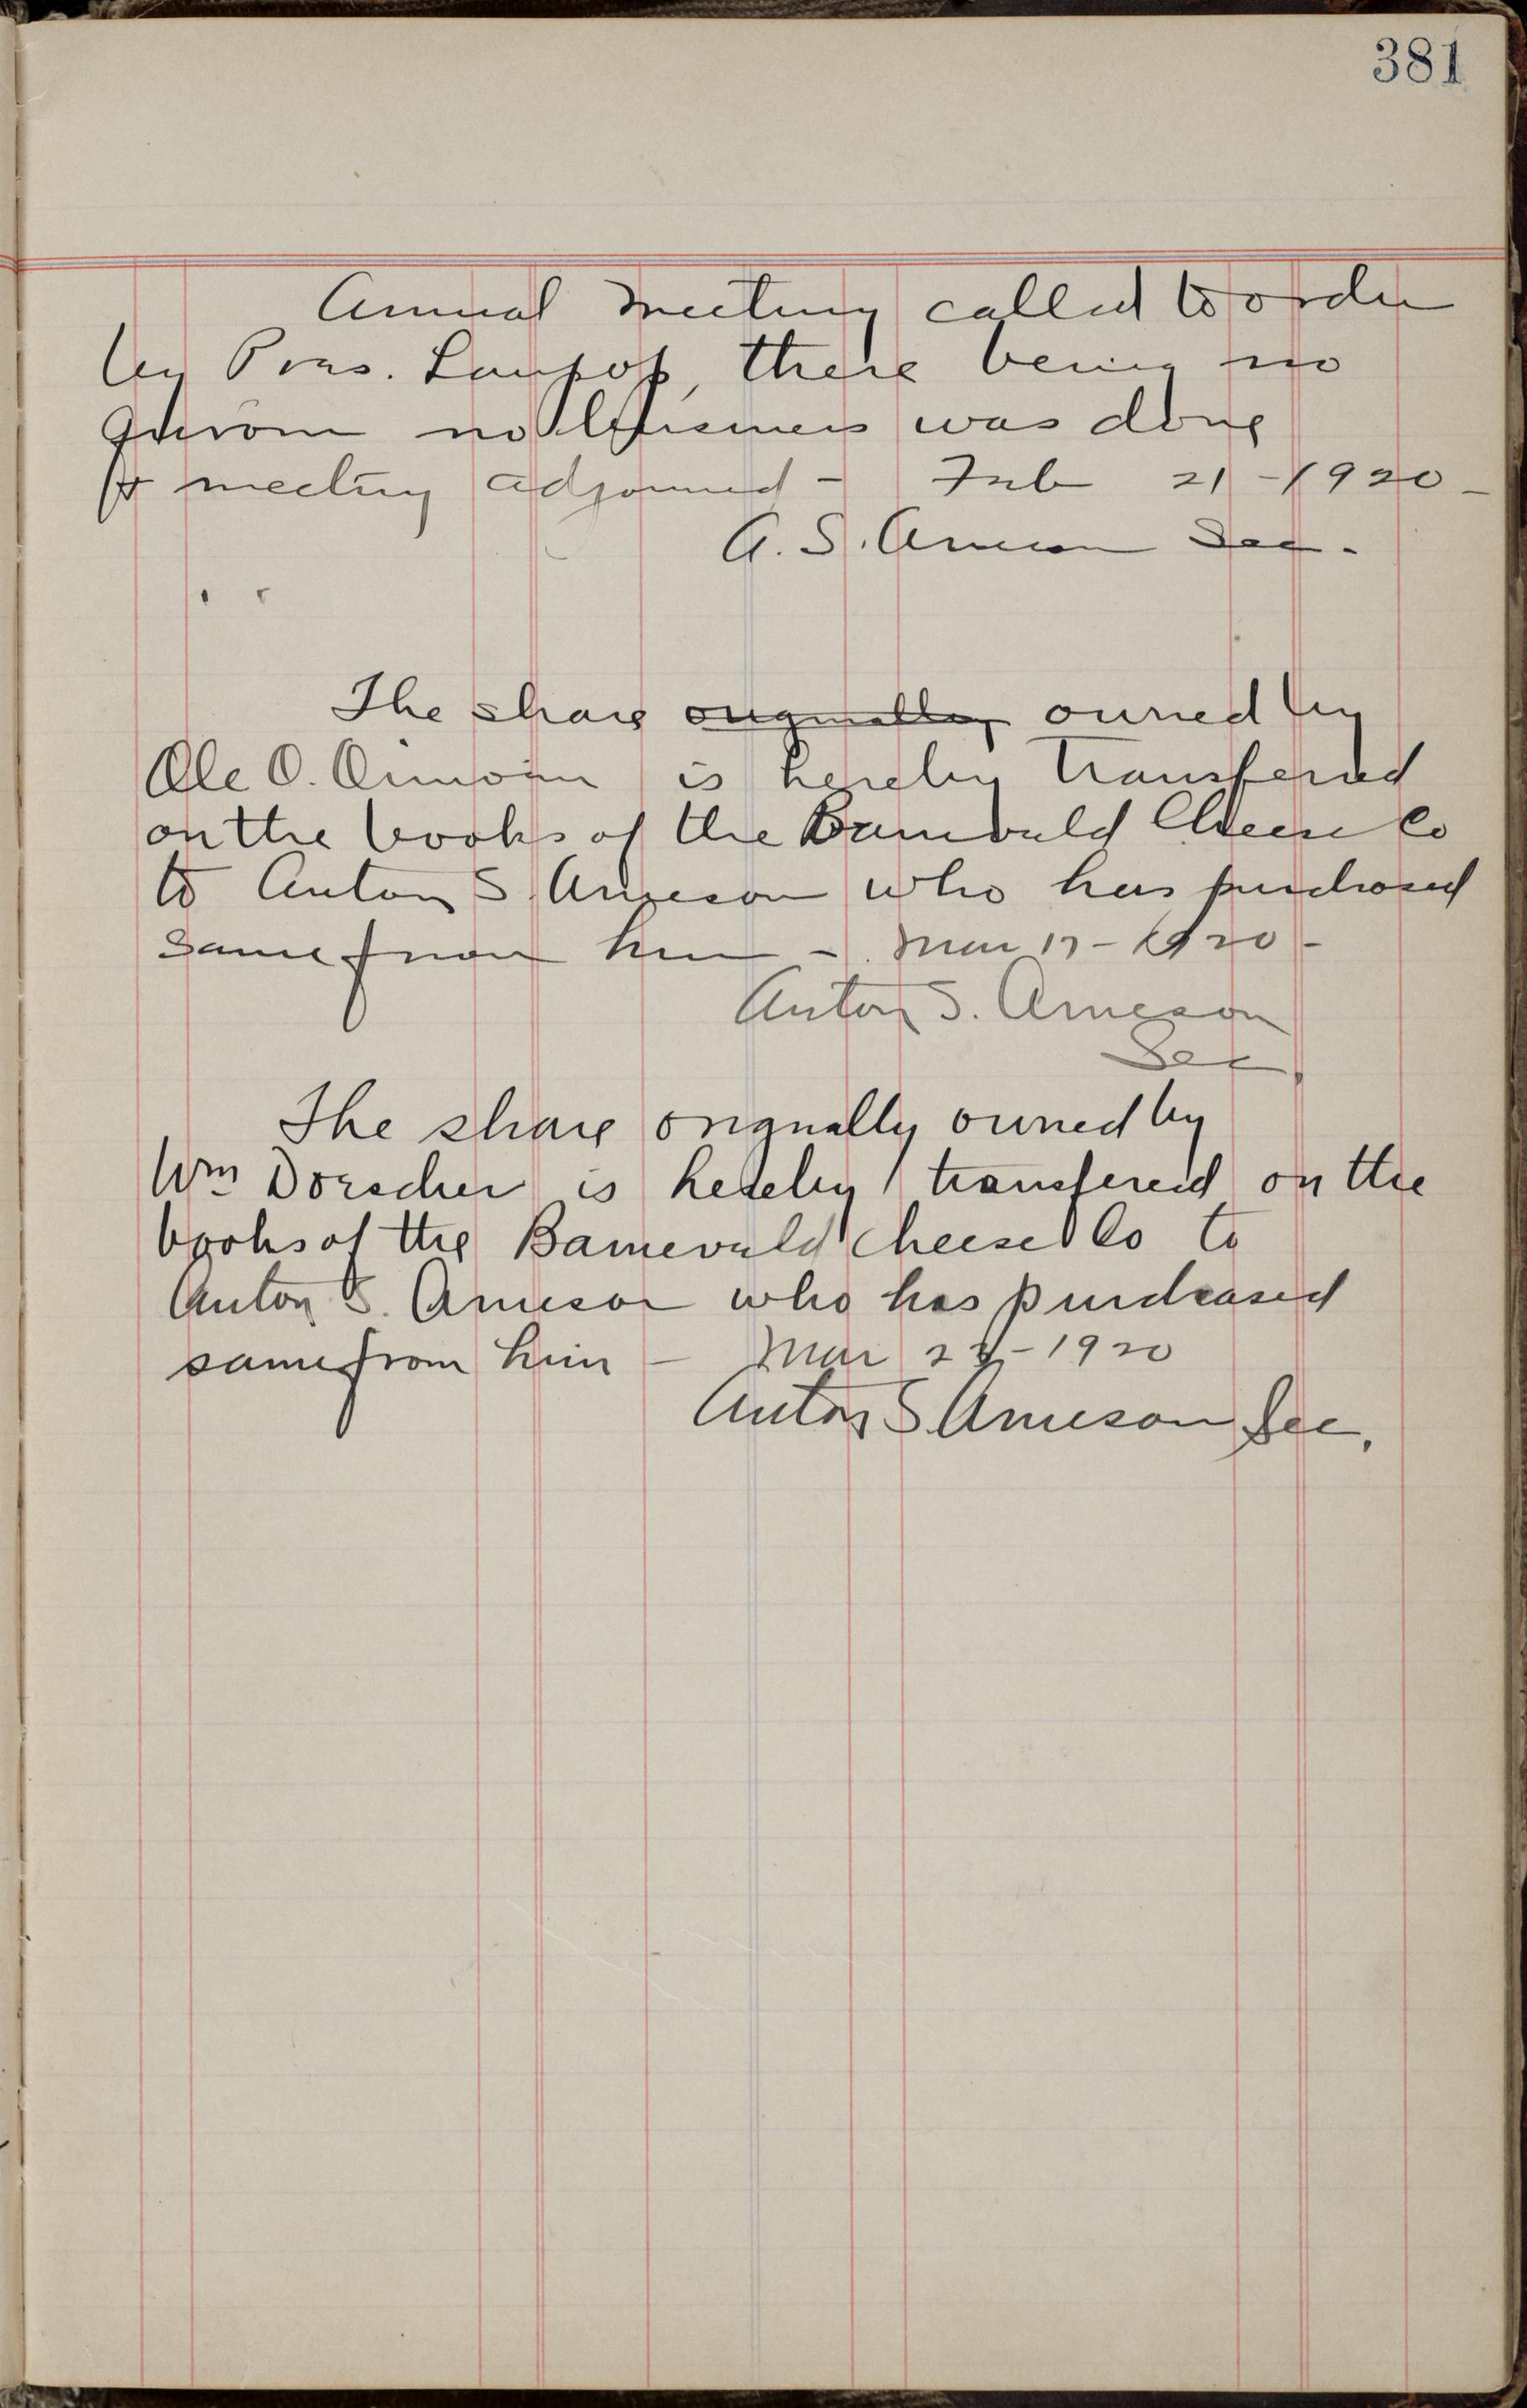 381
Annual meeting called to order
by Pres. there being no
quorom no buisiness was done
& meeting adjourned - Feb 21 - 1920 -
A. S. Arneson Sec.
The share originally owned by
Ole O. is hereby transferred
on the books of the Barneveld Cheese Co
to Anton S. Arneson who has purchased
same from him - Mar 17 - 1920 -
Anton S. Arneson
Sec.
The share orignally owned by
Wm Dorscher is hereby transfered on the
books of the Barneveld Cheese Co to
Anton S. Arneson who has purchased
same from him - Mar 24 - 1920
Anton S. Arneson Sec.